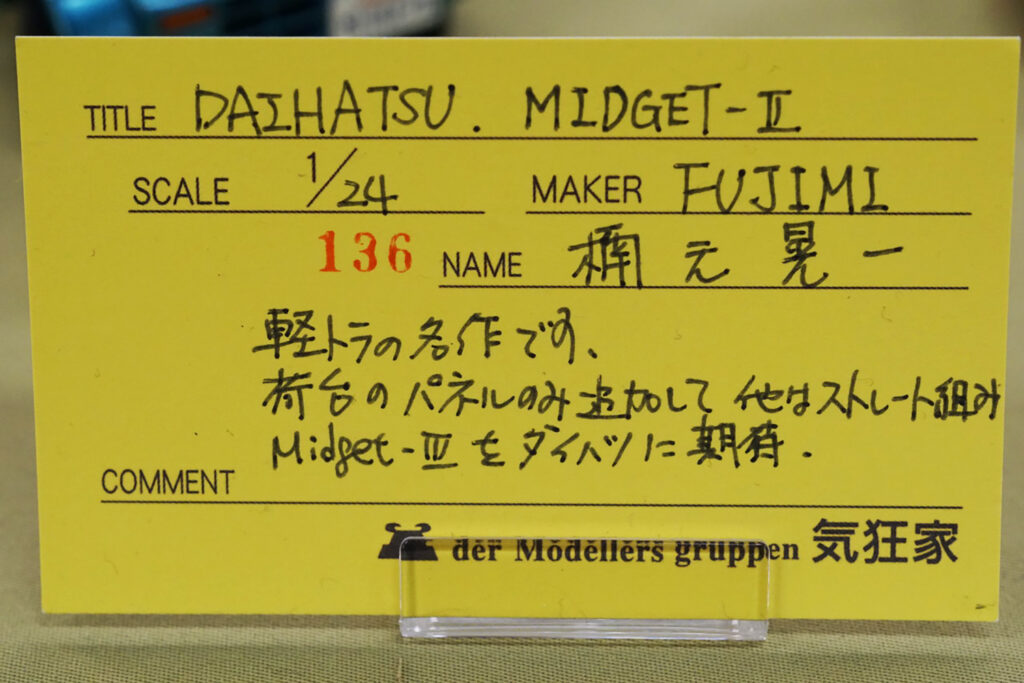 TITLE DAIHATSU. MIDGET-II
SCALE 1/24 MAKER FUJIMI
136 NAME 楠元晃一
軽トラの名作です、
荷台のパネルのみ追加して 他はストレート組み
Midget-III をダイハツに期待.
COMMENT
der Modellers gruppen 気狂家